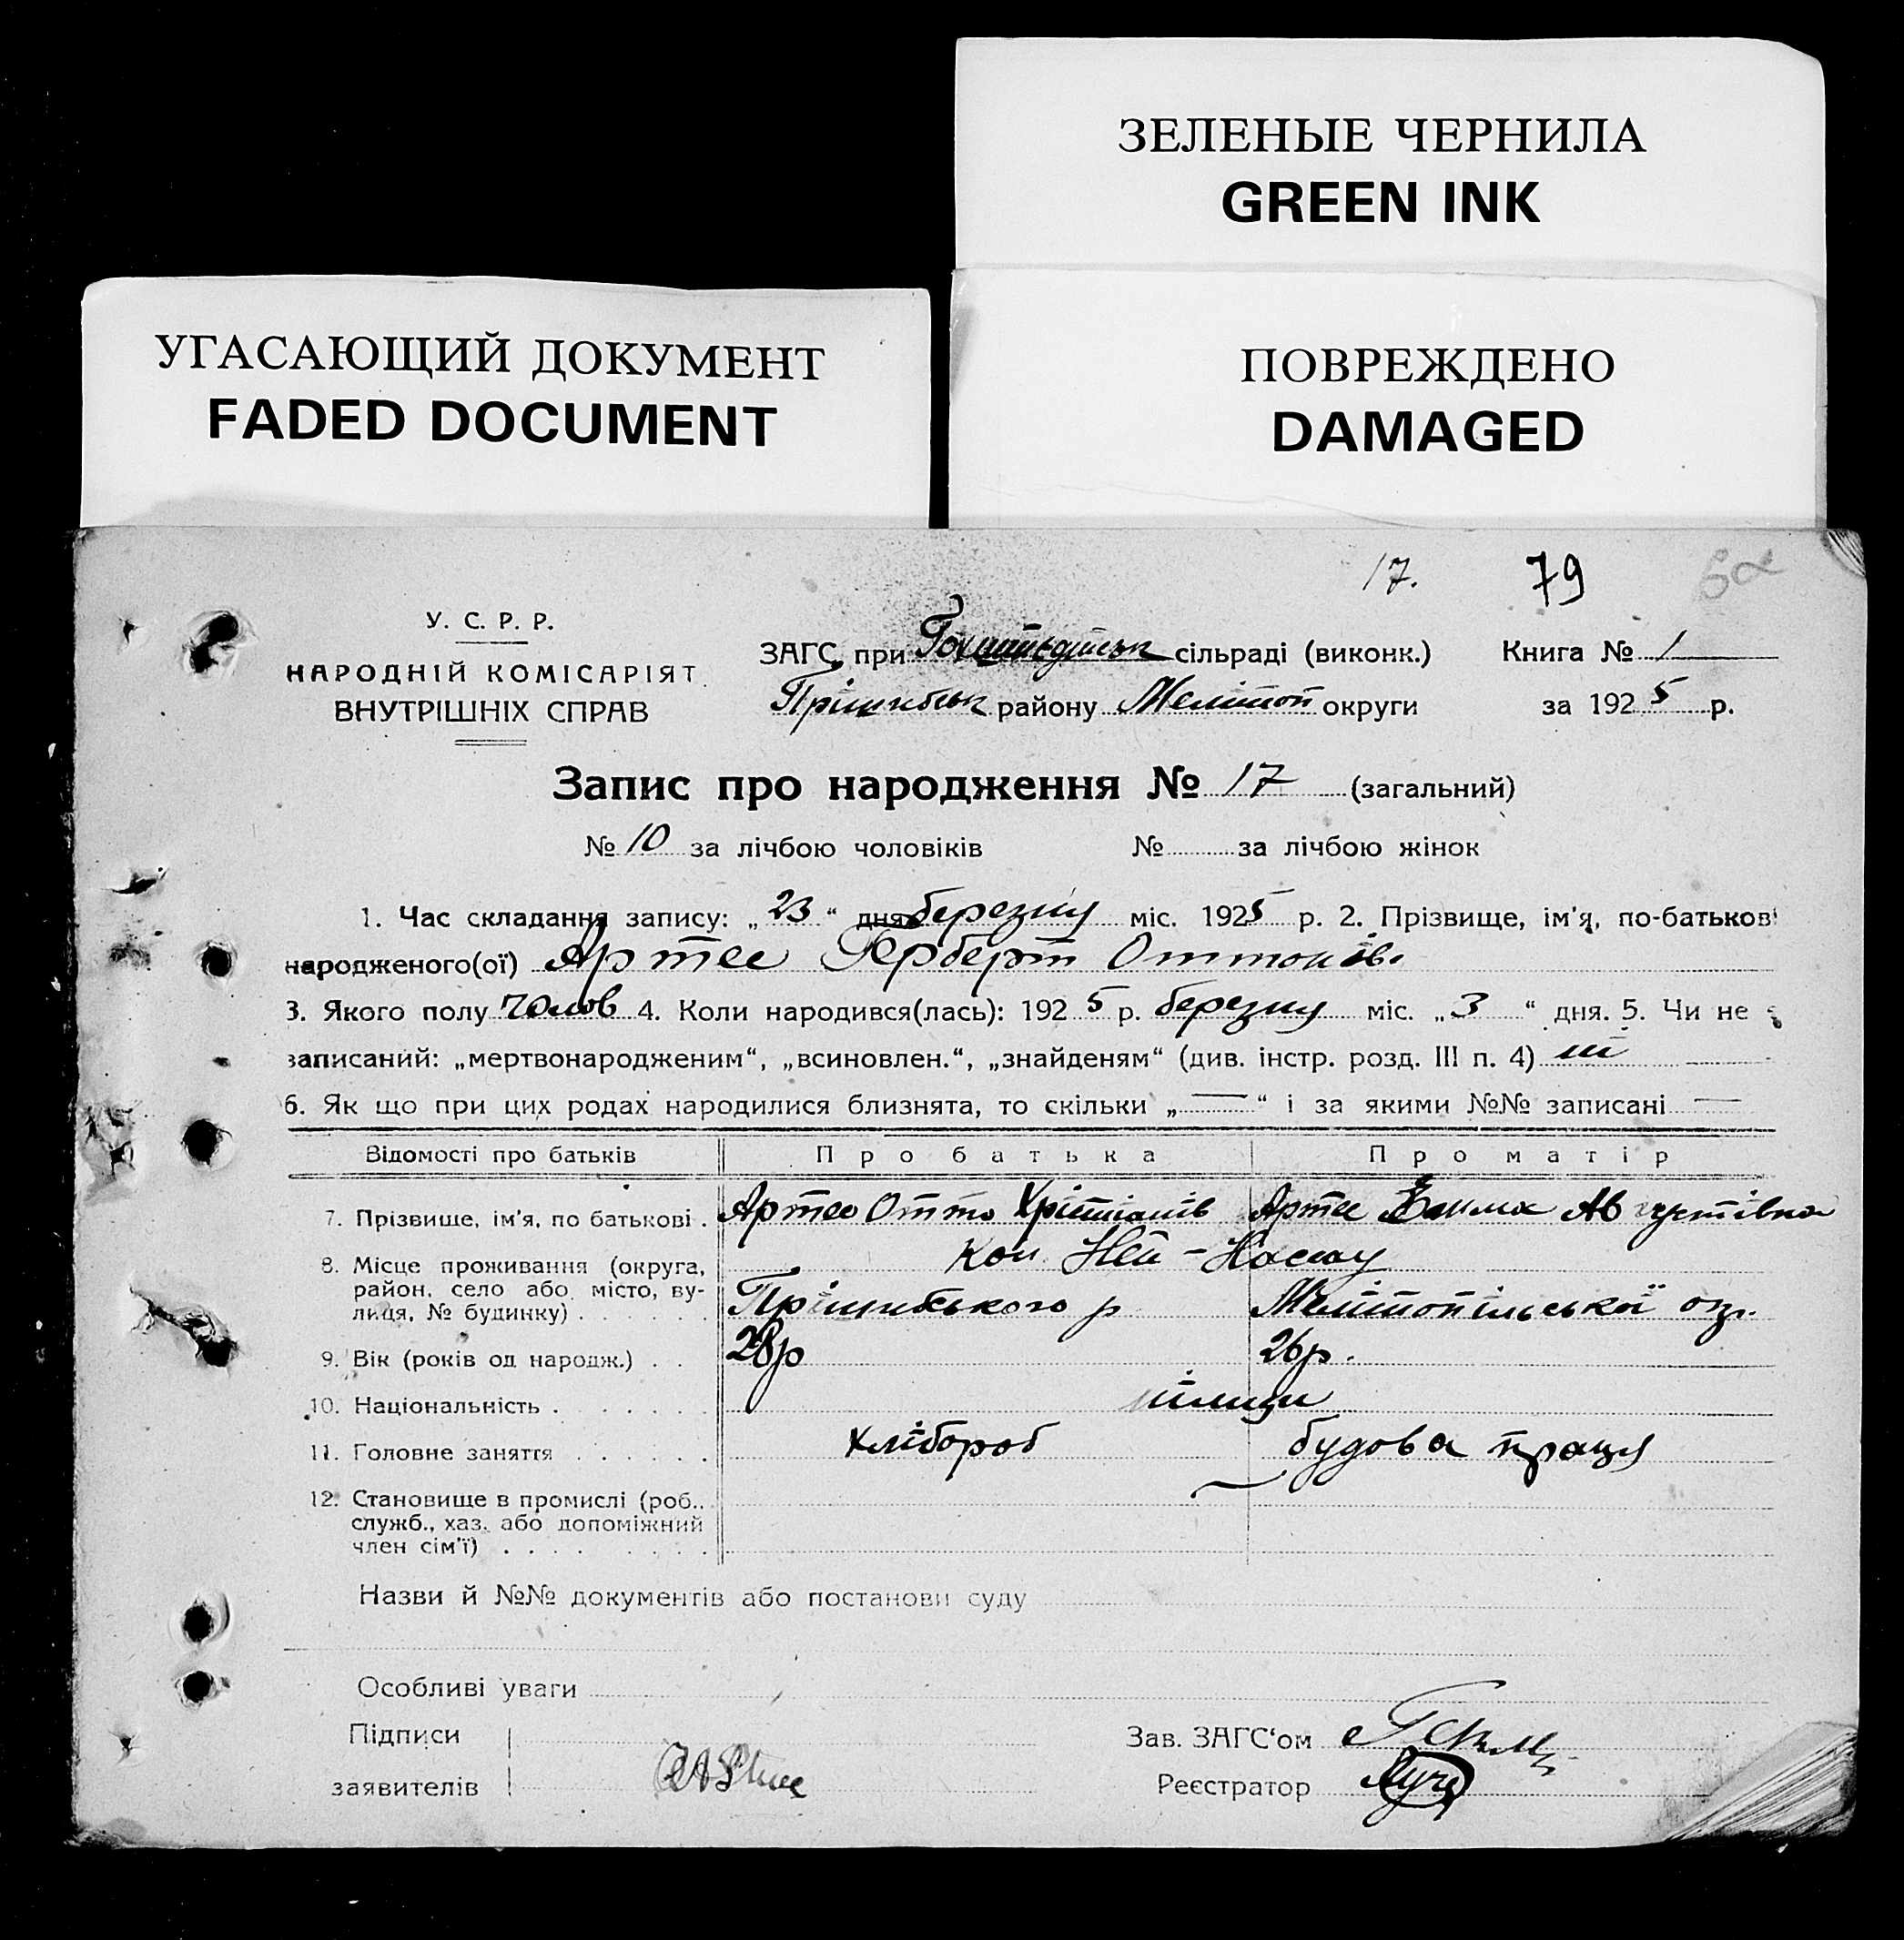 ЗЕЛЕНЫЕ ЧЕРНИЛА
GREEN INK
УГАСАЮЩИЙ ДОКУМЕНТ
FADED DOCUMENT
ПОВРЕЖДЕНО
DAMAGED
17. 79
У. С. Р. Р.
НАРОДНІЙ КОМІСАРІЯТ
ВНУТРІШНІХ СПРАВ
ЗАГС при сільраді (виконк.) Книга № 1
Прішибськ району Меліт­оп округи за 1925 р.
Запис про народження № 17 (загальний)
№ 10 за лічбою чоловіків № за лічбою жінок
1. Час складання запису: „23“ дня березня міс. 1925 р. 2. Прізвище, ім'я, по-батькові
народженого(ої) Артес Герберт Оттонів.
3. Якого полу чолов 4. Коли народився(лась): 1925 р. березня міс. „3“ дня. 5. Чи не є
записаний: „мертвонародженим“, „всиновлен.“, „знайденям“ (див. інстр. розд. III п. 4) ні
6. Як що при цих родах народилися близнята, то скільки „—“ і за якими №№ записані —
Відомості про батьків Про батька Про матір
7. Прізвище, ім'я, по батькові . Артес Отто Хрістіанів Артес Августівна
8. Місце проживання (округа, район, село або місто, вулиця, № будинку) . . . . . . Кол. Ней-Насау
Прішибського р Мелітопільської окр.
9. Вік (років од народж.) . . 28р 26р.
10. Національність . . . . . . німці
11. Головне заняття . . . . . . хлібороб будова праця
12. Становище в промислі (роб., служб., хаз. або допоміжний член сім'ї) . . . . . . . . —
Назви й №№ документів або постанови суду
Особливі уваги
Підписи
заявителів
Зав. ЗАГС'ом
Реєстратор